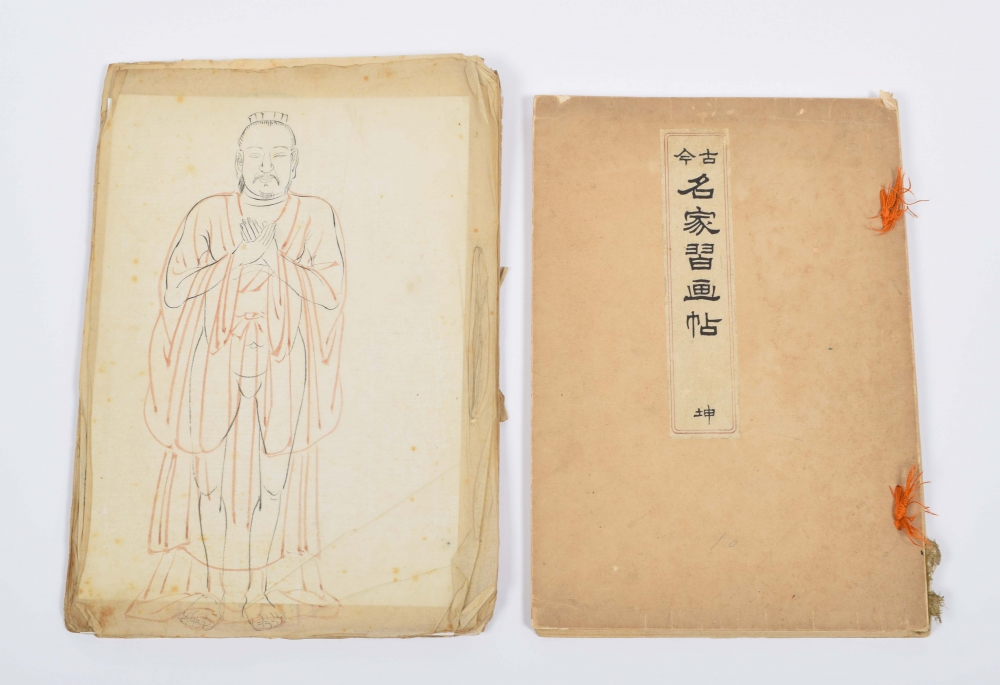 古今
名家習画帖
坤